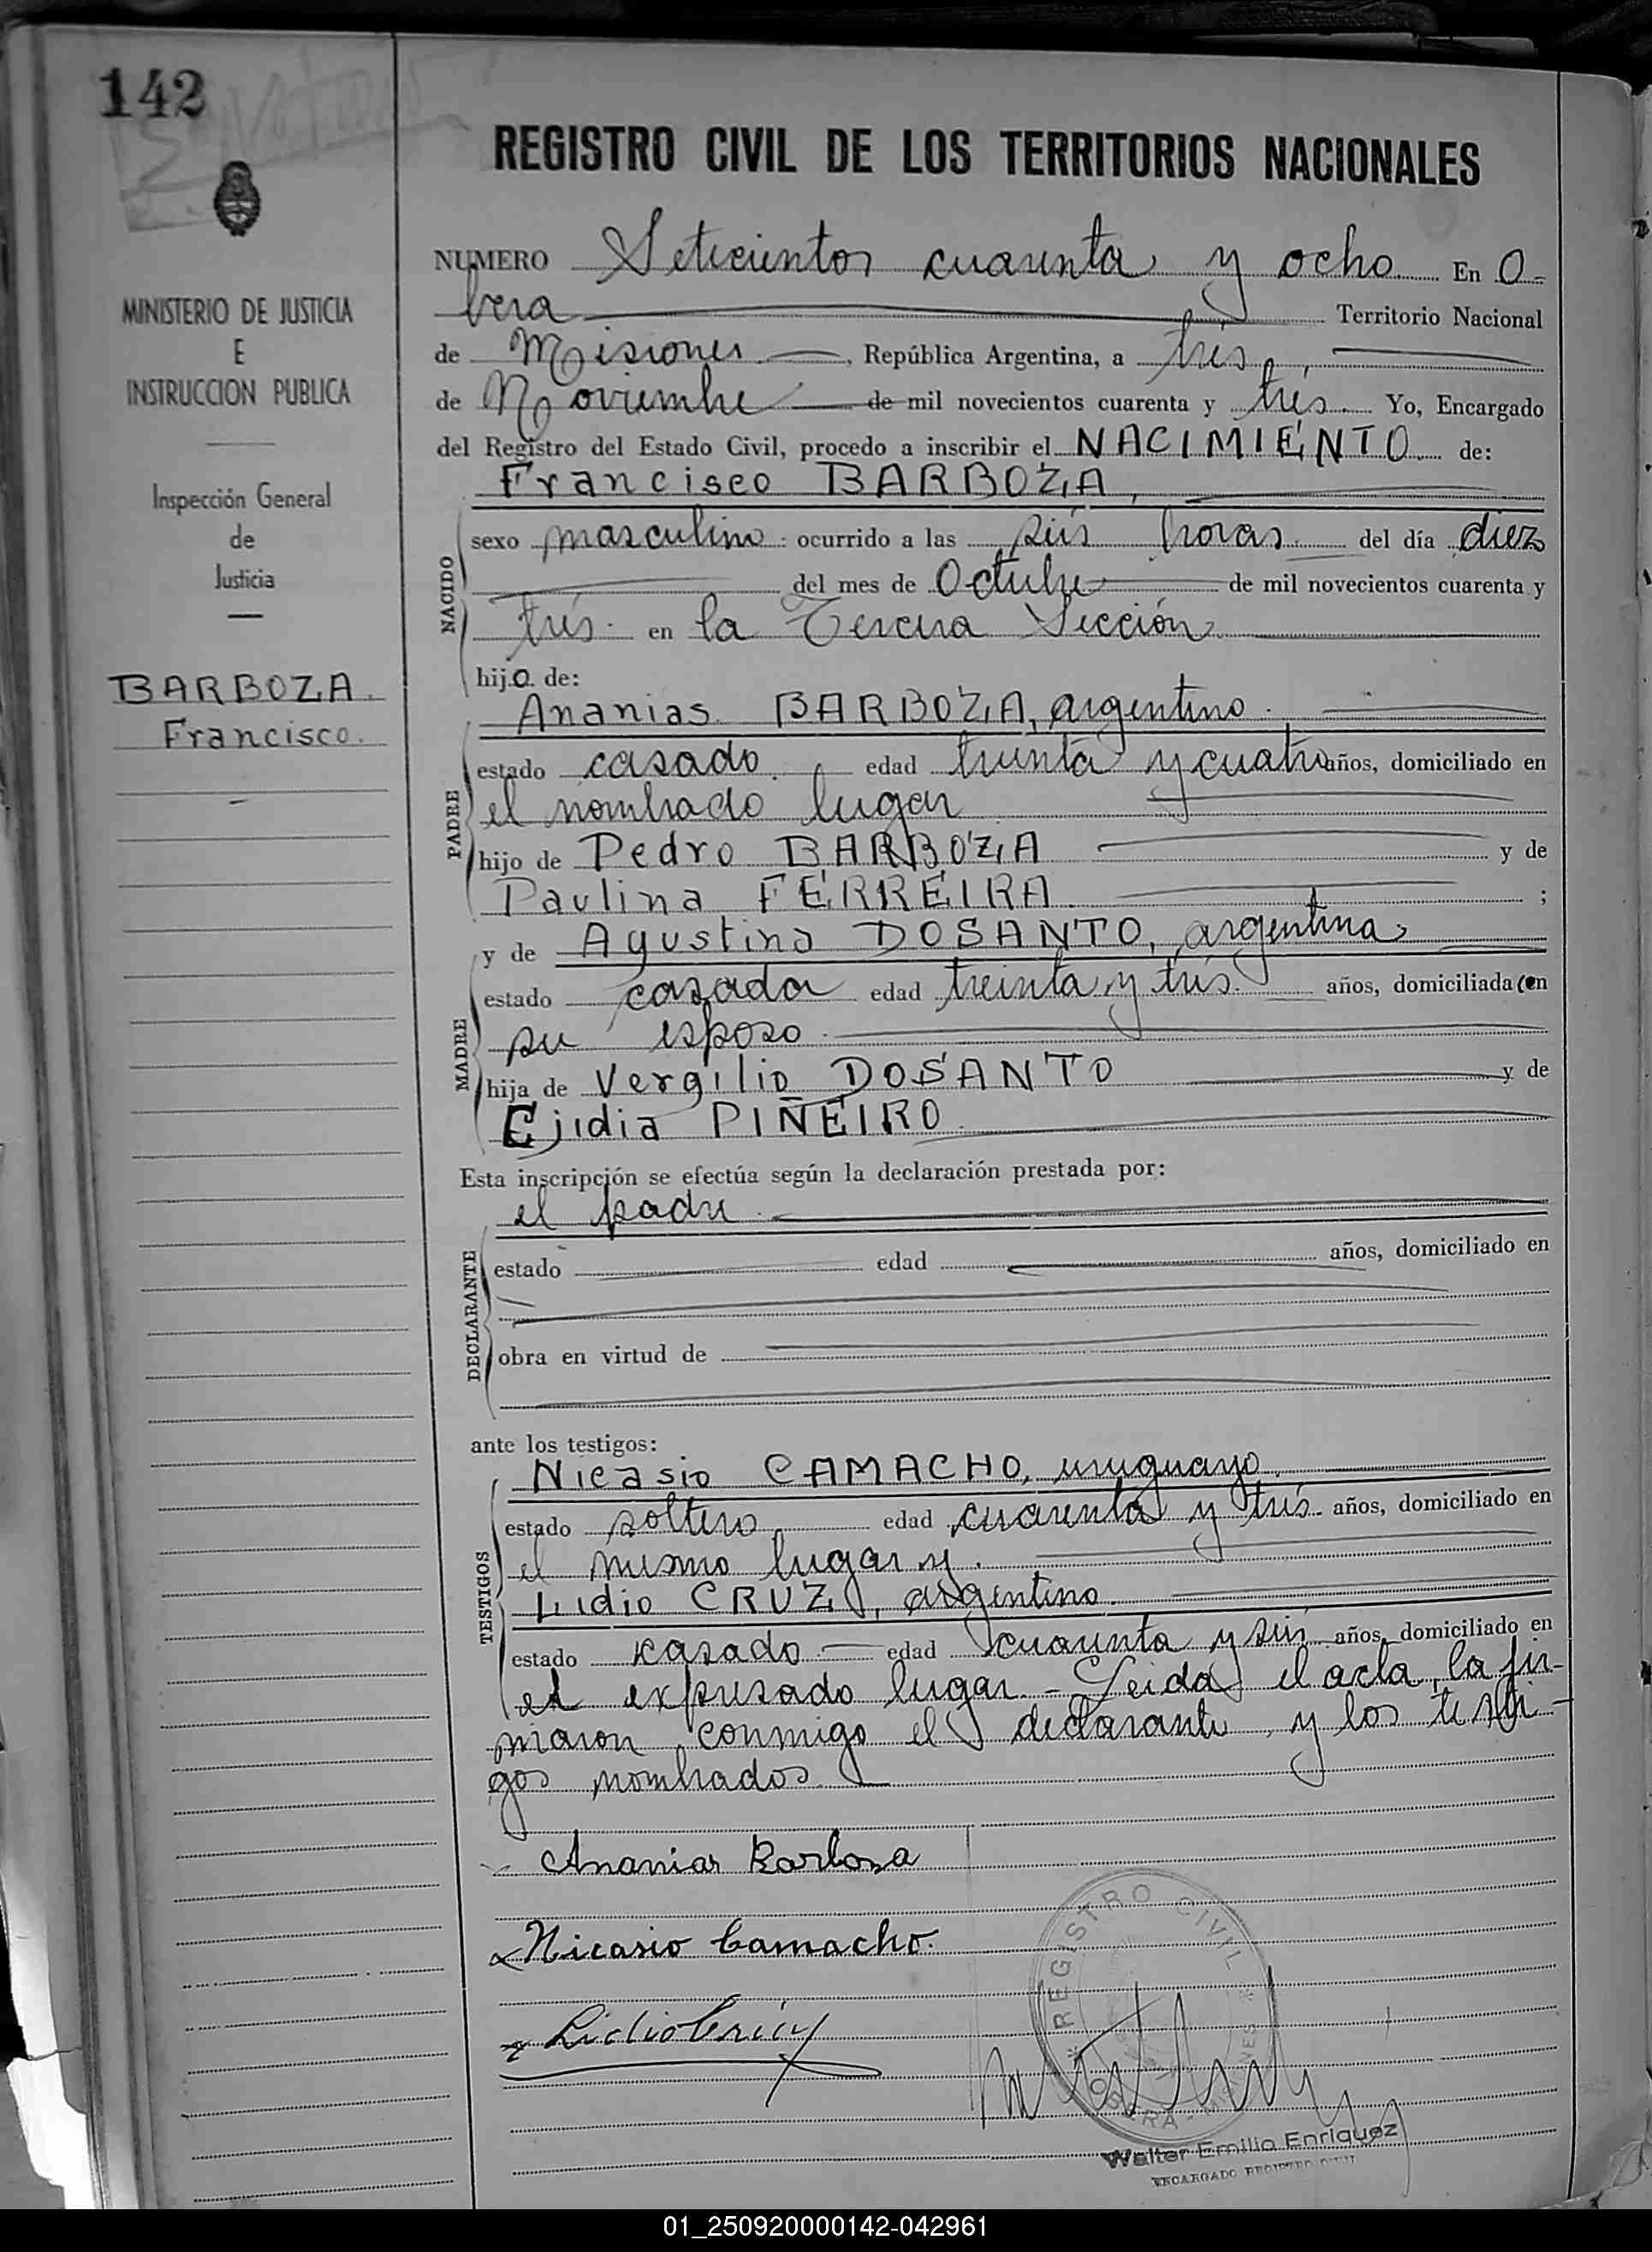 142
REGISTRO CIVIL DE LOS TERRITORIOS NACIONALES
MINISTERIO DE JUSTICIA
E
INSTRUCCION PUBLICA
Inspección General
de
Justicia
BARBOZA
Francisco.
NUMERO Setecientos cuarenta y ocho En O-
bera Territorio Nacional
de Misiones, República Argentina, a tres,
de Noviembre de mil novecientos cuarenta y tres. Yo, Encargado
del Registro del Estado Civil, procedo a inscribir el NACIMIENTO de:
Francisco BARBOZA,
NACIDO
sexo masculino ocurrido a las seis horas del día diez
del mes de Octubre de mil novecientos cuarenta y
tres en la Tercera Sección
hijo de:
Ananias BARBOZA, argentino
PADRE
estado casado edad treinta y cuatro años, domiciliado en
el nombrado lugar
hijo de Pedro BARBOZA y de
Paulina FERREIRA ;
y de Agustina DOSANTO, argentina
MADRE
estado casada edad treinta y tres años, domiciliada con
su esposo
hija de Vergilio DOSANTO y de
Ejidia PIÑEIRO
Esta inscripción se efectúa según la declaración prestada por:
el padre
DECLARANTE
estado edad años, domiciliado en
obra en virtud de
ante los testigos:
Nicasio CAMACHO, uruguayo
TESTIGOS
estado soltero edad cuarenta y tres años, domiciliado en
el mismo lugar y
Lidio CRUZ, argentino.
estado casado edad cuarenta y seis años, domiciliado en
el expresado lugar.- Leida el acta, la fir-
maron conmigo el declarante y los testi-
gos nombrados.
Ananias Barboza
Nicasio Camacho.
REGISTRO CIVIL
OBERA - MISIONES
Walter Emilio Enriquez
ENCARGADO REGISTRO CIVIL
01_250920000142-042961